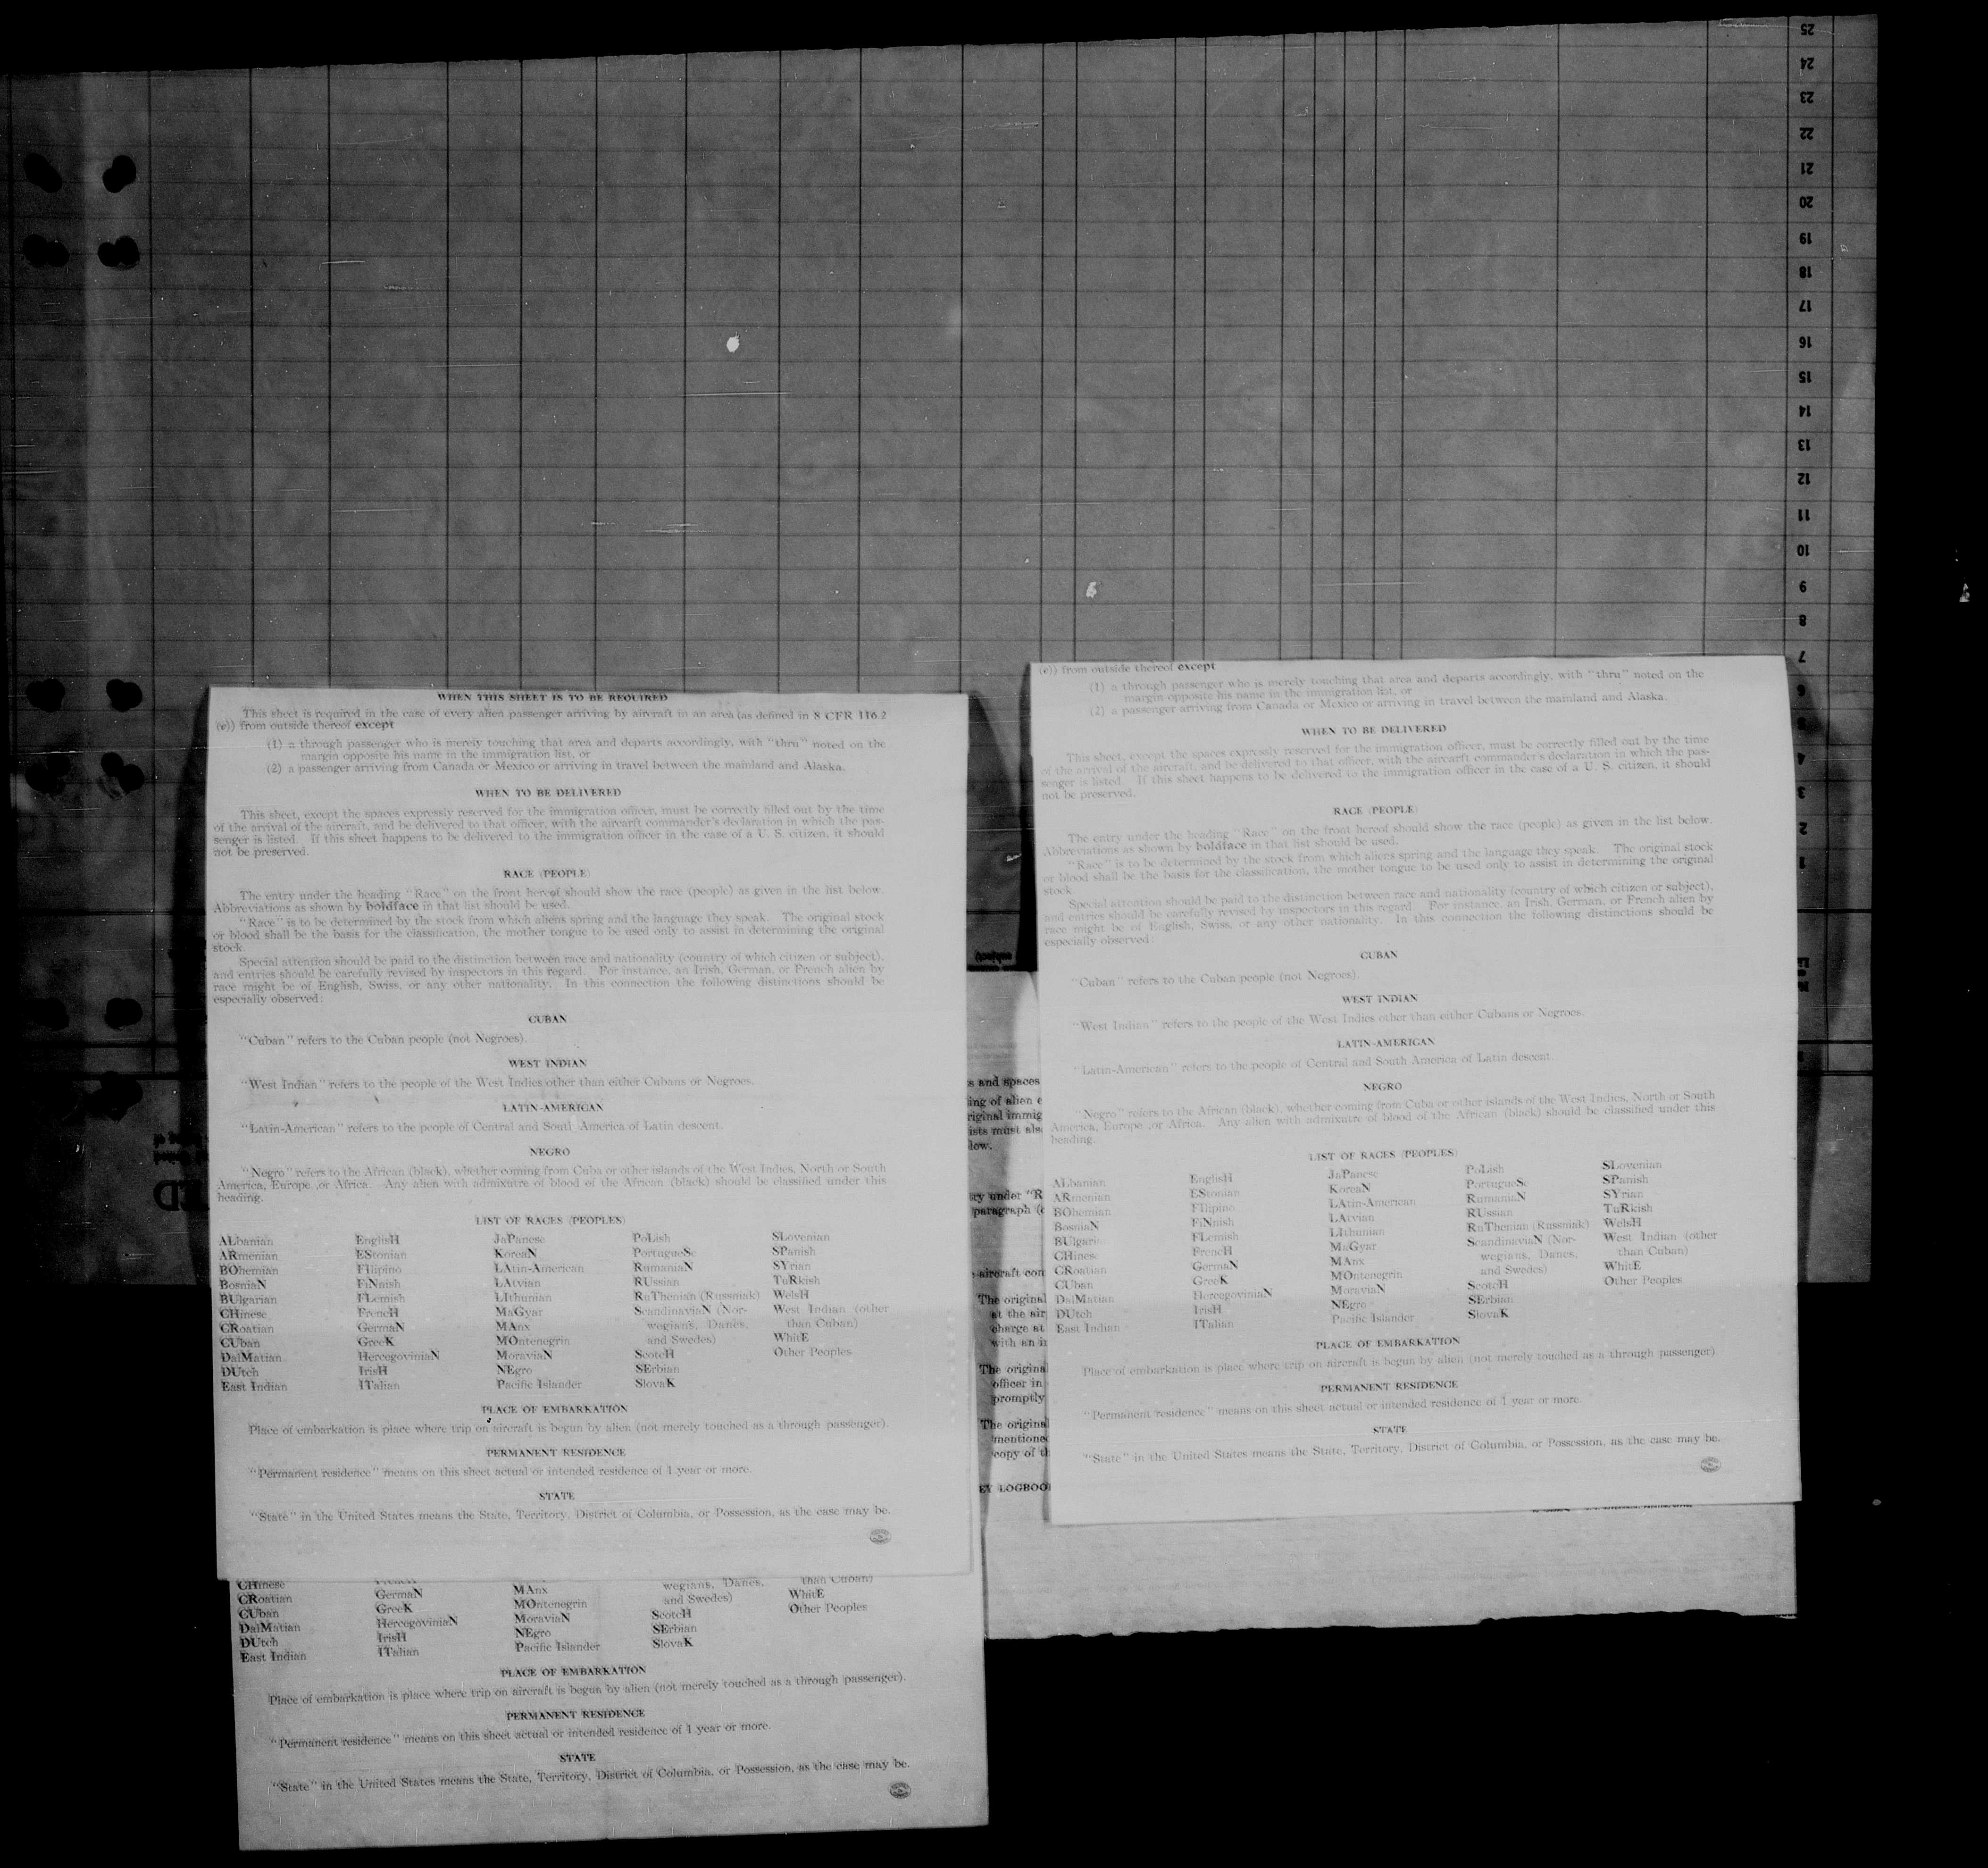 25
24
23
22
21
20
19
18
17
16
15
14
13
12
11
10
9
8
7
6
5
4
3
2
1
WHEN THIS SHEET IS TO BE REQUIRED
This sheet is required in the case of every alien passenger arriving by aircraft in an area (as defined in 8 CFR 116.2
(e)) from outside thereof except
(1) a through passenger who is merely touching that area and departs accordingly, with "thru" noted on the
margin opposite his name in the immigration list, or
(2) a passenger arriving from Canada or Mexico or arriving in travel between the mainland and Alaska.
WHEN TO BE DELIVERED
This sheet, except the spaces expressly reserved for the immigration officer, must be correctly filled out by the time
of the arrival of the aircraft, and be delivered to that officer, with the aircarft commander's declaration in which the pas-
senger is listed. If this sheet happens to be delivered to the immigration officer in the case of a U. S. citizen, it should
not be preserved.
RACE (PEOPLE)
The entry under the heading "Race" on the front hereof should show the race (people) as given in the list below.
Abbreviations as shown by boldface in that list should be used.
"Race" is to be determined by the stock from which aliens spring and the language they speak. The original stock
or blood shall be the basis for the classification, the mother tongue to be used only to assist in determining the original
stock.
Special attention should be paid to the distinction between race and nationality (country of which citizen or subject),
and entries should be carefully revised by inspectors in this regard. For instance, an Irish, German, or French alien by
race might be of English, Swiss, or any other nationality. In this connection the following distinctions should be
especially observed:
CUBAN
"Cuban" refers to the Cuban people (not Negroes).
WEST INDIAN
"West Indian" refers to the people of the West Indies other than either Cubans or Negroes.
LATIN-AMERICAN
"Latin-American" refers to the people of Central and South America of Latin descent.
NEGRO
"Negro" refers to the African (black), whether coming from Cuba or other islands of the West Indies, North or South
America, Europe ,or Africa. Any alien with admixutre of blood of the African (black) should be classified under this
heading.
LIST OF RACES (PEOPLES)
ALbanian EnglisH JaPanese PoLish SLovenian
ARmenian EStonian KoreaN PortugueSe SPanish
BOhemian FIlipino LAtin-American RumaniaN SYrian
BosniaN FiNnish LAtvian RUssian TuRkish
BUlgarian FLemish LIthunian RuThenian (Russniak) WelsH
CHinese FrencH MaGyar ScandinaviaN (Nor- West Indian (other
CRoatian GermaN MAnx wegians, Danes, than Cuban)
CUban GreeK MOntenegrin and Swedes) WhitE
DalMatian HercegoviniaN MoraviaN ScotcH Other Peoples
DUtch IrisH NEgro SErbian
East Indian ITalian Pacific Islander SlovaK
PLACE OF EMBARKATION
Place of embarkation is place where trip on aircraft is begun by alien (not merely touched as a through passenger).
PERMANENT RESIDENCE
"Permanent residence" means on this sheet actual or intended residence of 1 year or more.
STATE
"State" in the United States means the State, Territory, District of Columbia, or Possession, as the case may be.
CHinese wegians, Danes, than Cuban)
CRoatian GermaN MAnx and Swedes) WhitE
CUban GreeK MOntenegrin ScotcH Other Peoples
DalMatian HercegoviniaN MoraviaN SErbian
DUtch IrisH NEgro SlovaK
East Indian ITalian Pacific Islander
PLACE OF EMBARKATION
Place of embarkation is place where trip on aircraft is begun by alien (not merely touched as a through passenger).
PERMANENT RESIDENCE
"Permanent residence" means on this sheet actual or intended residence of 1 year or more.
STATE
"State" in the United States means the State, Territory, District of Columbia, or Possession, as the case may be.
s and spaces
ing of alien
riginal immig
ists must als
low.
ry under "R
paragraph (
aircraft com
The original
at the air
charge at
with an i
The origina
officer in
promptly
The origina
mentione
copy of t
EY LOGBOO
(e)) from outside thereof except
(1) a through passenger who is merely touching that area and departs accordingly, with "thru" noted on the
margin opposite his name in the immigration list, or
(2) a passenger arriving from Canada or Mexico or arriving in travel between the mainland and Alaska.
WHEN TO BE DELIVERED
This sheet, except the spaces expressly reserved for the immigration officer, must be correctly filled out by the time
of the arrival of the aircraft, and be delivered to that officer, with the aircarft commander's declaration in which the pas-
senger is listed. If this sheet happens to be delivered to the immigration officer in the case of a U. S. citizen, it should
not be preserved.
RACE (PEOPLE)
The entry under the heading "Race" on the front hereof should show the race (people) as given in the list below.
Abbreviations as shown by boldface in that list should be used.
"Race" is to be determined by the stock from which aliens spring and the language they speak. The original stock
or blood shall be the basis for the classification, the mother tongue to be used only to assist in determining the original
stock.
Special attention should be paid to the distinction between race and nationality (country of which citizen or subject),
and entries should be carefully revised by inspectors in this regard. For instance, an Irish, German, or French alien by
race might be of English, Swiss, or any other nationality. In this connection the following distinctions should be
especially observed:
CUBAN
"Cuban" refers to the Cuban people (not Negroes).
WEST INDIAN
"West Indian" refers to the people of the West Indies other than either Cubans or Negroes.
LATIN-AMERICAN
"Latin-American" refers to the people of Central and South America of Latin descent.
NEGRO
"Negro" refers to the African (black), whether coming from Cuba or other islands of the West Indies, North or South
America, Europe ,or Africa. Any alien with admixutre of blood of the African (black) should be classified under this
heading.
LIST OF RACES (PEOPLES)
ALbanian EnglisH JaPanese PoLish SLovenian
ARmenian EStonian KoreaN PortugueSe SPanish
BOhemian FIlipino LAtin-American RumaniaN SYrian
BosniaN FiNnish LAtvian RUssian TuRkish
BUlgaria FLemish LIthunian RuThenian (Russniak) WelsH
CHinese FrencH MaGyar ScandinaviaN (Nor- West Indian (other
CRoatian GermaN MAnx wegians, Danes, than Cuban)
CUban GreeK MOntenegrin and Swedes) WhitE
DalMatian HercegoviniaN MoraviaN ScotcH Other Peoples
DUtch IrisH NEgro SErbian
East Indian ITalian Pacific Islander SlovaK
PLACE OF EMBARKATION
Place of embarkation is place where trip on aircraft is begun by alien (not merely touched as a through passenger).
PERMANENT RESIDENCE
"Permanent residence" means on this sheet actual or intended residence of 1 year or more.
STATE
"State" in the United States means the State, Territory, District of Columbia, or Possession, as the case may be.